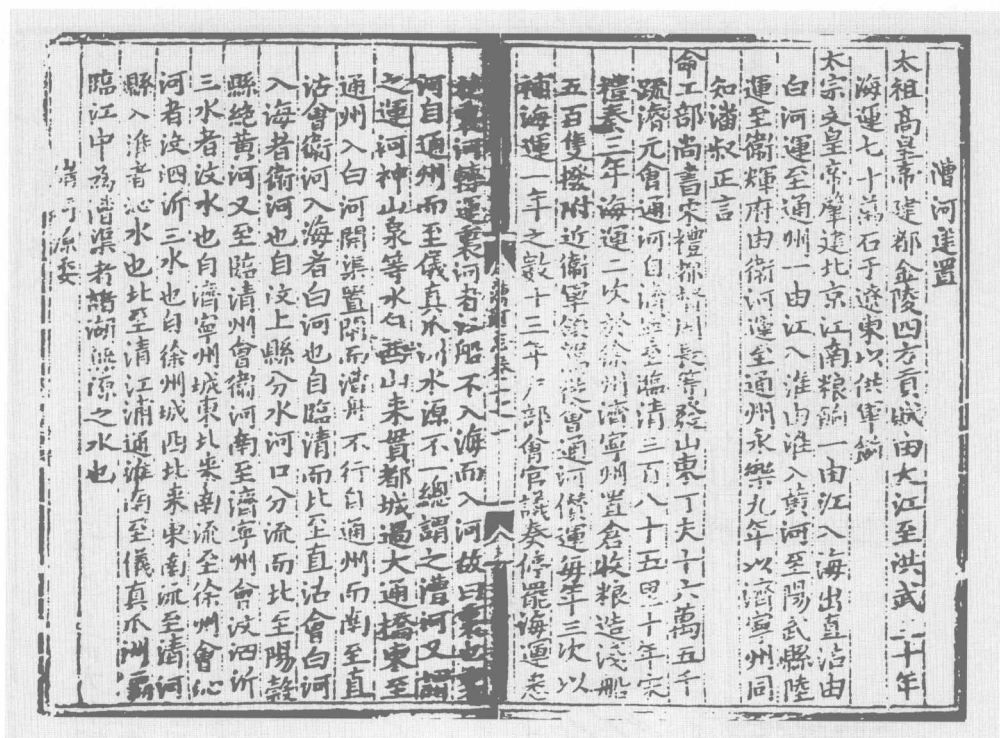 漕河建置
太祖高皇帝建都金陵四方貢賦由大江至洪武二十年
海運七十萬石于遼東以供軍餉
太宗文皇帝肇建北京江南粮餉一由江入海出直沽由
白河運至通州一由江入淮由淮入黃河至陽武縣陸
運至衛輝府由衛河運至通州永樂九年以濟寧州同
知潘叔正言
命工部尚書宋禮都督周長等發山東丁夫十六萬五千
疏濟元會通河自濟寧至臨清三百八十五里十年宋
禮奏三年海運二次於徐州濟寧州置倉收粮造淺船
五百隻撥附近衛軍領駕從會通河儧運每年三次以
補海運一年之數十三年戶部會官議奏停罷海運悉
從裏河轉運裏河者江船不入海而入河故曰裏也裏
河自通州而至儀真瓜洲水源不一總謂之漕河又謂
之運河神山泉等水石西山来貫都城過大通橋東至
通州入白河開渠置閘而漕舟不行自通州而南至直
沽會衛河入海者白河也自臨清而北至直沽會白河
入海者衛河也自汶上縣分水河口分流而北至陽穀
縣絶黄河又至臨清州會衛河南至濟寧州會汶泗沂
三水者汶水也自濟寧州城東北来南流至徐州會沁
河者汶泗沂三水也自徐州城西北来東南流至清河
縣入淮者沁水也北至清江浦通淮南至儀真瓜洲
臨江中為漕渠者諸湖無源之水也
漕河源委